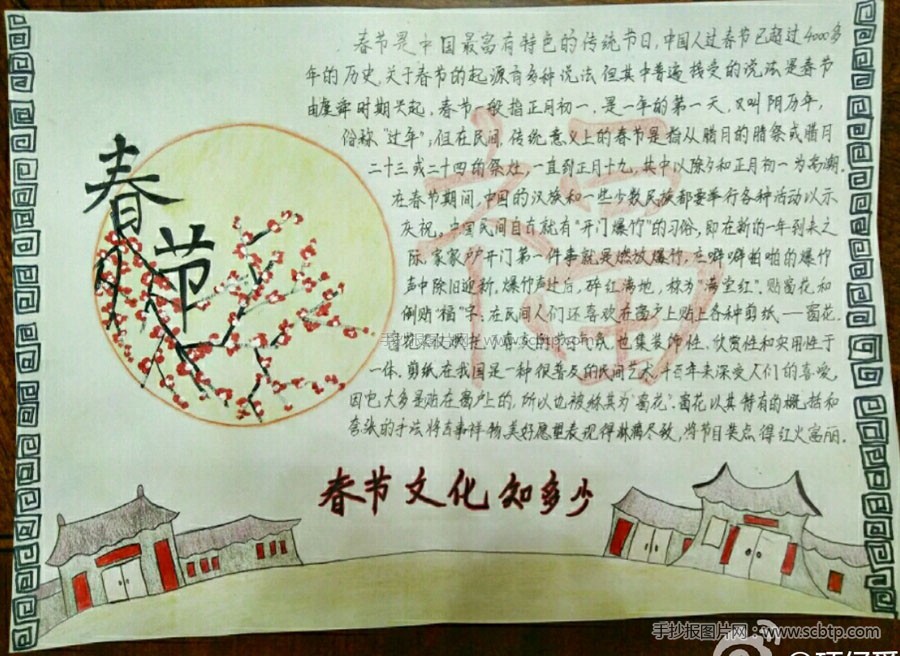 春节
福
春节是中国最富有特色的传统节日,中国人过春节已超过4000多
年的历史,关于春节的起源有多种说法,但其中普遍接受的说法是春节
由虞舜时期兴起。春节一般指正月初一,是一年的第一天,又叫阴历年,
俗称“过年”;但在民间,传统意义上的春节是指从腊月的腊祭或腊月
二十三或二十四的祭灶,一直到正月十九,其中以除夕和正月初一为高潮.
在春节期间,中国的汉族和一些少数民族都要举行各种活动以示
庆祝。中国民间自古就有“开门爆竹”的习俗,即在新的一年到来之
际,家家户户开门第一件事就是燃放爆竹,在噼噼啪啪的爆竹
声中除旧迎新,爆竹声过后,碎红满地,称为“满堂红”,贴窗花和
倒贴“福”字:在民间人们还喜欢在窗户上贴上各种剪纸——窗花.
窗花不仅烘托了喜庆的节日气氛,也集装饰性、欣赏性和实用性于
一体.剪纸在我国是一种很普及的民间艺术,千百年来深受人们的喜爱,
因它大多是贴在窗户上的,所以也被称其为“窗花”.窗花以其特有的概括和
夸张的手法将吉事祥物,美好愿望表现得淋漓尽致,将节日装点得红火富丽.
春节文化知多少
手抄报图片网:www.scbtp.com